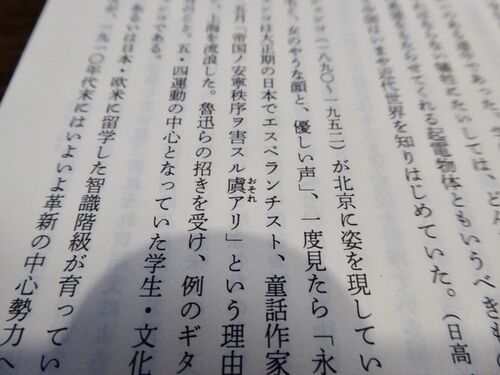 であった。
にたいしては、
てくれる起電物体ともいうべきも
いまや近代世界を知りはじめていた。(日高
ンコ(一八九〇~一九五二)が北京に姿を現してい
女のやうな顔と、優しい声」、一度見たら「永
ンコは大正期の日本でエスペランチスト、童話作家
五月「帝国ノ安寧秩序ヲ害スル虞アリ」という理由
おそれ
、上海を流浪した。魯迅らの招きを受け、例のギタ
五・四運動の中心となっていた学生・文化
である。
るいは日本・欧米に留学した智識階級が育ってい
、一九一〇年代末にはいよいよ革新の中心勢力へ